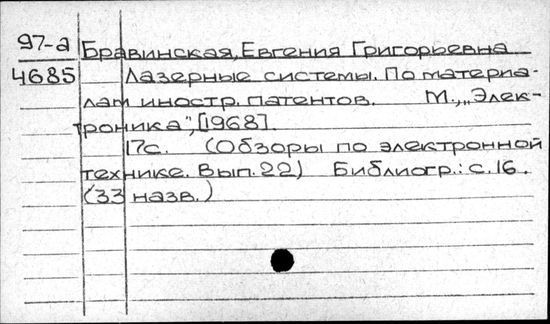 97-а Бравинская, Евгения Григорьевна
4685 Лазерные системы. По материа-
лам иностр. патентов. М., „Элек-
троника”, [1968].
17с. (Обзоры по электронной
технике. Вып. 22) Библиогр.: с. 16.
(33 назв.)